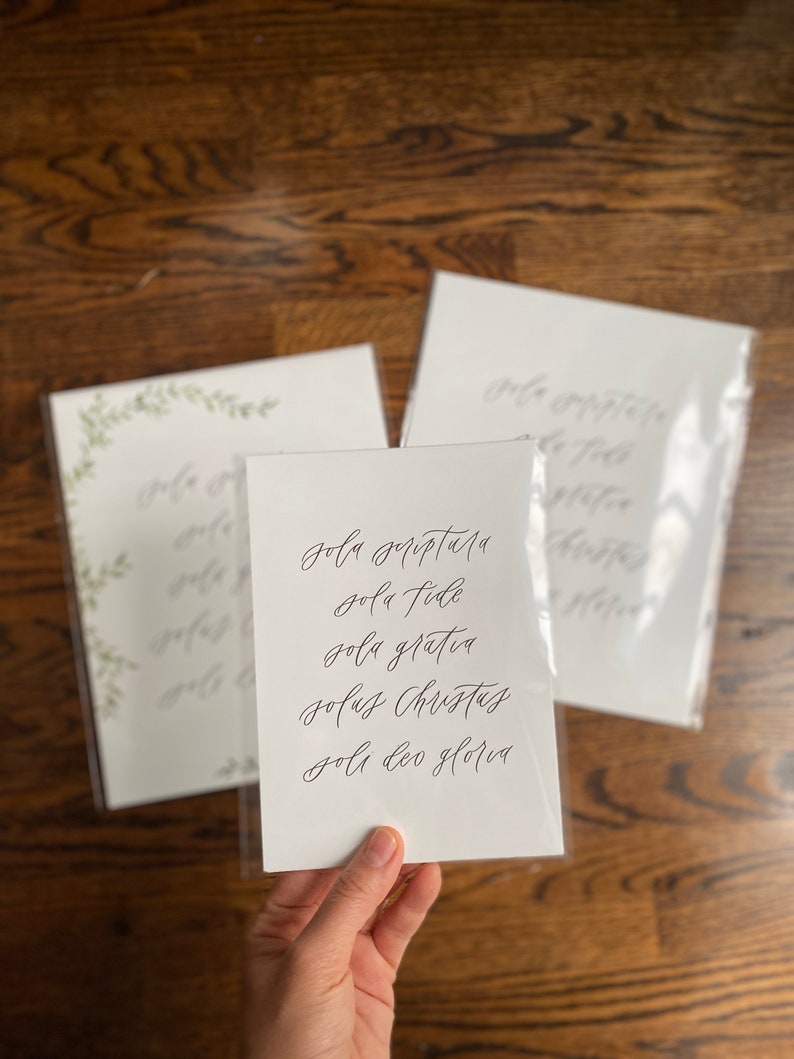 sola scriptura
sola fide
sola gratia
solus Christus
soli deo gloria
sola scriptura
fide
gratia
Christus
gloria
sola
sola
sola
solus
soli